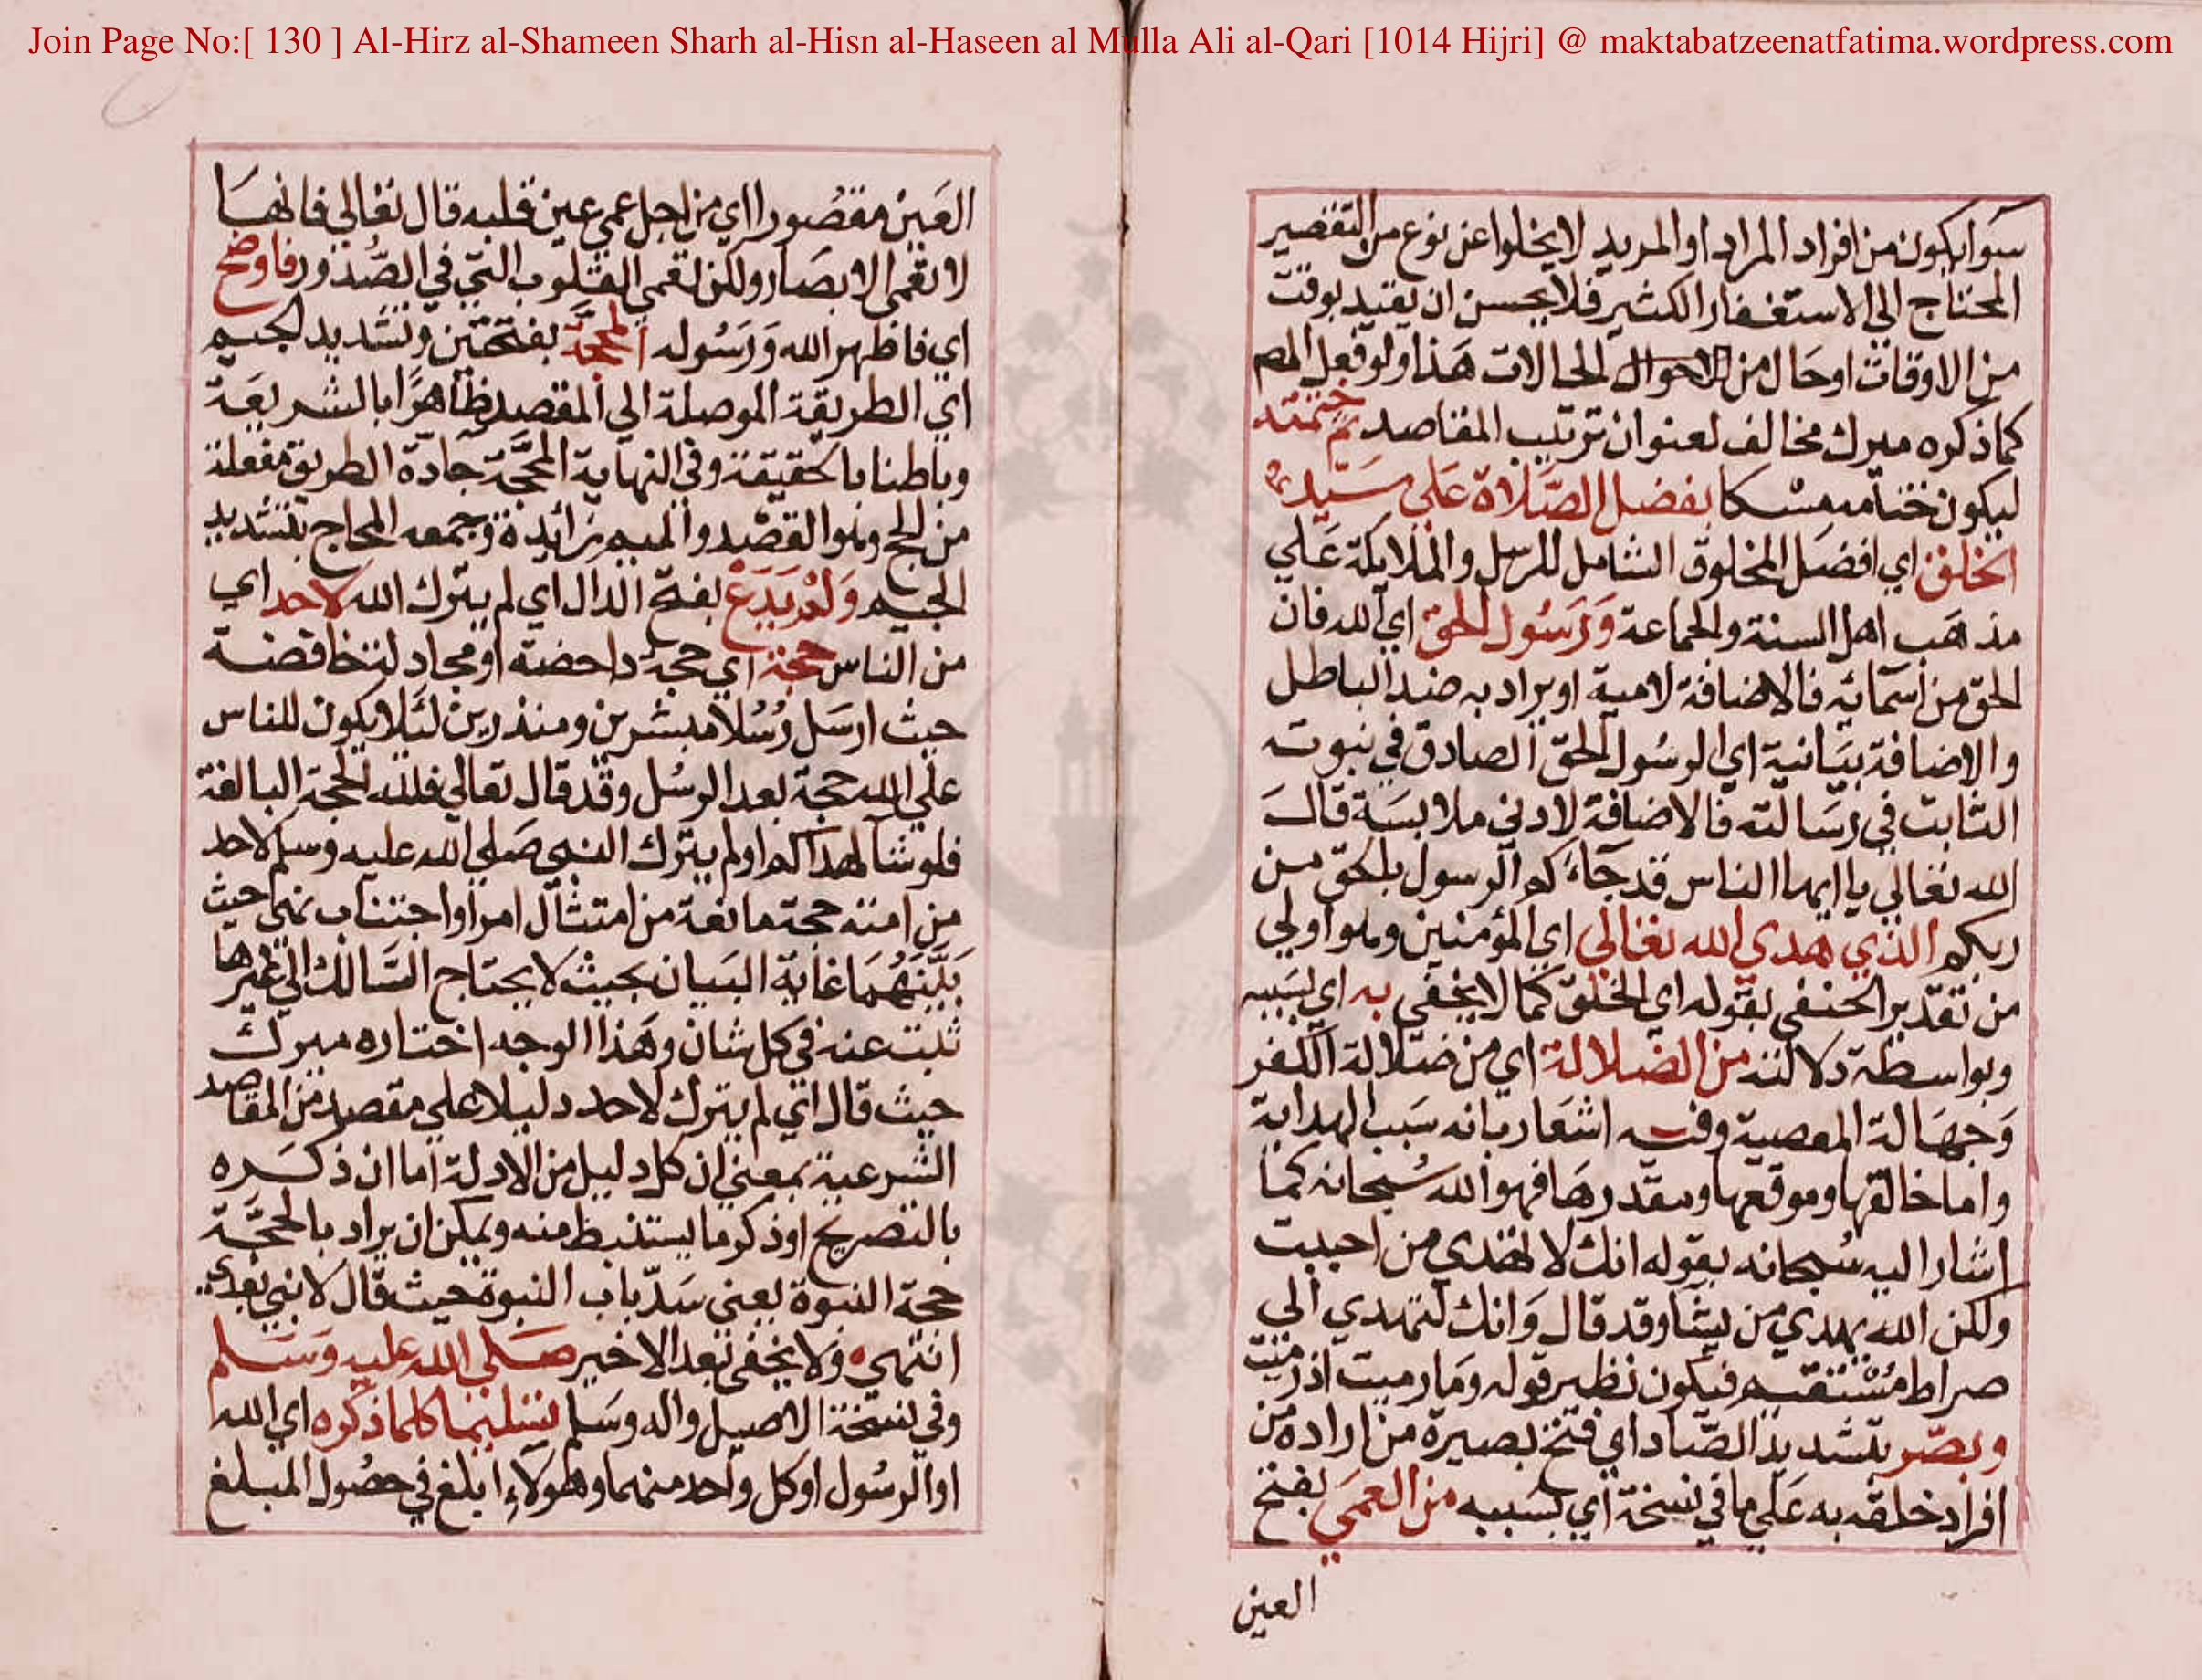 Join Page No:[ 130 ] Al-Hirz al-Shameen Sharh al-Hisn al-Haseen al Mulla Ali al-Qari [1014 Hijri] @ maktabatzeenatfatima.wordpress.com
سوا يكون من افراد المراد او المريد لا يخلوا عن نوع من التقصير
المحتاج الي الاستغفار الكثير فلا يحسن ان يقيد بوقت
من الاوقات او حال من الاحوال الحالات هذا ولو فعل المص
كما ذكره ميرك مخالف لعنوان ترتيب المقاصد ثم ختمته
ليكون ختامه مسكا بفضل الصلاة علي سيد
الخلق اي افضل المخلوق الشامل للرسل والملايكة علي
مذهب اهل السنة والجماعة ورسول الحق اي الله فان
الحق من اسمائه فالاضافة لامية او يراد به ضد الباطل
والاضافة بيانية اي الرسول الحق الصادق في نبوته
الثابت في رسالته فالاضافة لادني ملابسة قال
الله تعالي يا ايها الناس قد جاءكم الرسول بالحق من
ربكم الذي هدي الله تعالي اي المؤمنين وهو اولي
من تقدير الحنفي بقوله اي الخلق كما لا يخفي به اي بسببه
وبواسطة دلالته من الضلالة اي من ضلالة الكفر
وجهالة المعصية وفيه اشعار بانه سبب الهداية
واما خالقها وموقعها ومقدرها فهو الله سبحانه كما
اشار اليه سبحانه بقوله انك لا تهدي من احببت
ولكن الله يهدي من يشا وقد قال وانك لتهدي الي
صراط مستقيم فيكون نظير قوله وما رميت اذ رميت
وبصّر بتشديد الصاد اي فتح بصيرة من اراده من
افراد خلقه به علي ما في نسخة اي بسببه من العمي بفتح
العين
العين مقصورا اي من اجل عمي عين قلبه قال تعالي فانها
لا تعمي الابصار ولكن تعمي القلوب التي في الصدور فاوضح
اي فاظهر الله ورسوله المحجة بفتحتين وتشديد الجيم
اي الطريقة الموصلة الي المقصد ظاهرا بالشريعة
وباطنا بالحقيقة وفي النهاية المحجة جادة الطريق مفعلة
من الحج وهو القصد والميم زائدة وجمعه المحاج بتشديد
الجيم ولم يدع بفتح الدال اي لم يترك الله لاحد اي
من الناس حجة اي حجة داحضة او مجادلة
حيث ارسل رسلا مبشرين ومنذرين لئلا يكون للناس
علي الله حجة بعد الرسل وقد قال تعالي فلله الحجة البالغة
فلو شا لهداكم او لم يترك النبي صلي الله عليه وسلم لاحد
من امته حجة مانعة من امتثال امر او اجتناب نهي حيث
بينهما غاية البيان بحيث لا يحتاج السالك الي غيرها
ثبت عنه في كل شان وهذا الوجه اختاره ميرك
حيث قال اي لم يترك لاحد دليلا علي مقصد من المقاصد
الشرعية بمعني ان كل دليل من الادلة اما ان ذكره
بالتصريح او ذكر ما يستنبط منه ويمكن ان يراد بالحجة
حجة النبوة يعني سد باب النبوة حيث قال لا نبي بعدي
انتهي ولا يخفي بعد الاخير صلي الله عليه وسلم
وفي نسخة الاصيل واله وسلم تسليما كلما ذكره اي الله
او الرسول او كل واحد منهما وهو لاء ابلغ في حصول المبلغ